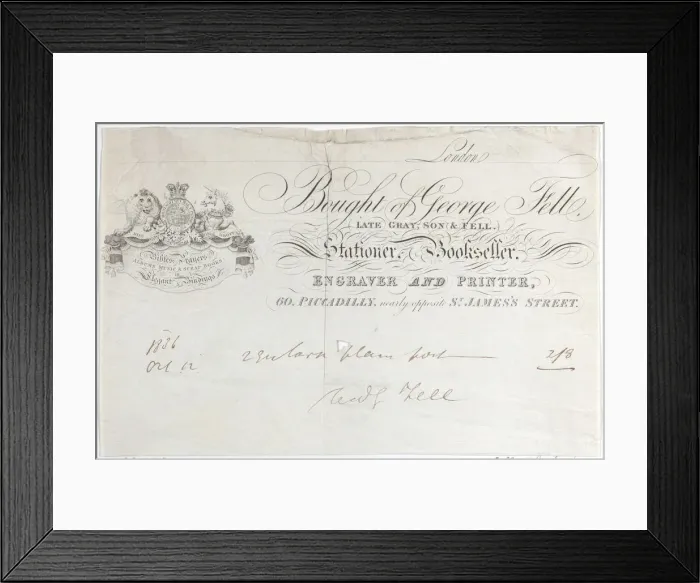 London
Bought of George Fell.
(LATE GRAY, SON & FELL.)
Stationer, Bookseller,
ENGRAVER AND PRINTER,
60, PICCADILLY, nearly opposite St. JAMES'S STREET.
Bibles & Prayers
ALBUMS MUSIC & SCRAP BOOKS
in
Elegant Bindings
1836
Oct 12 plain post 2/8
Fell